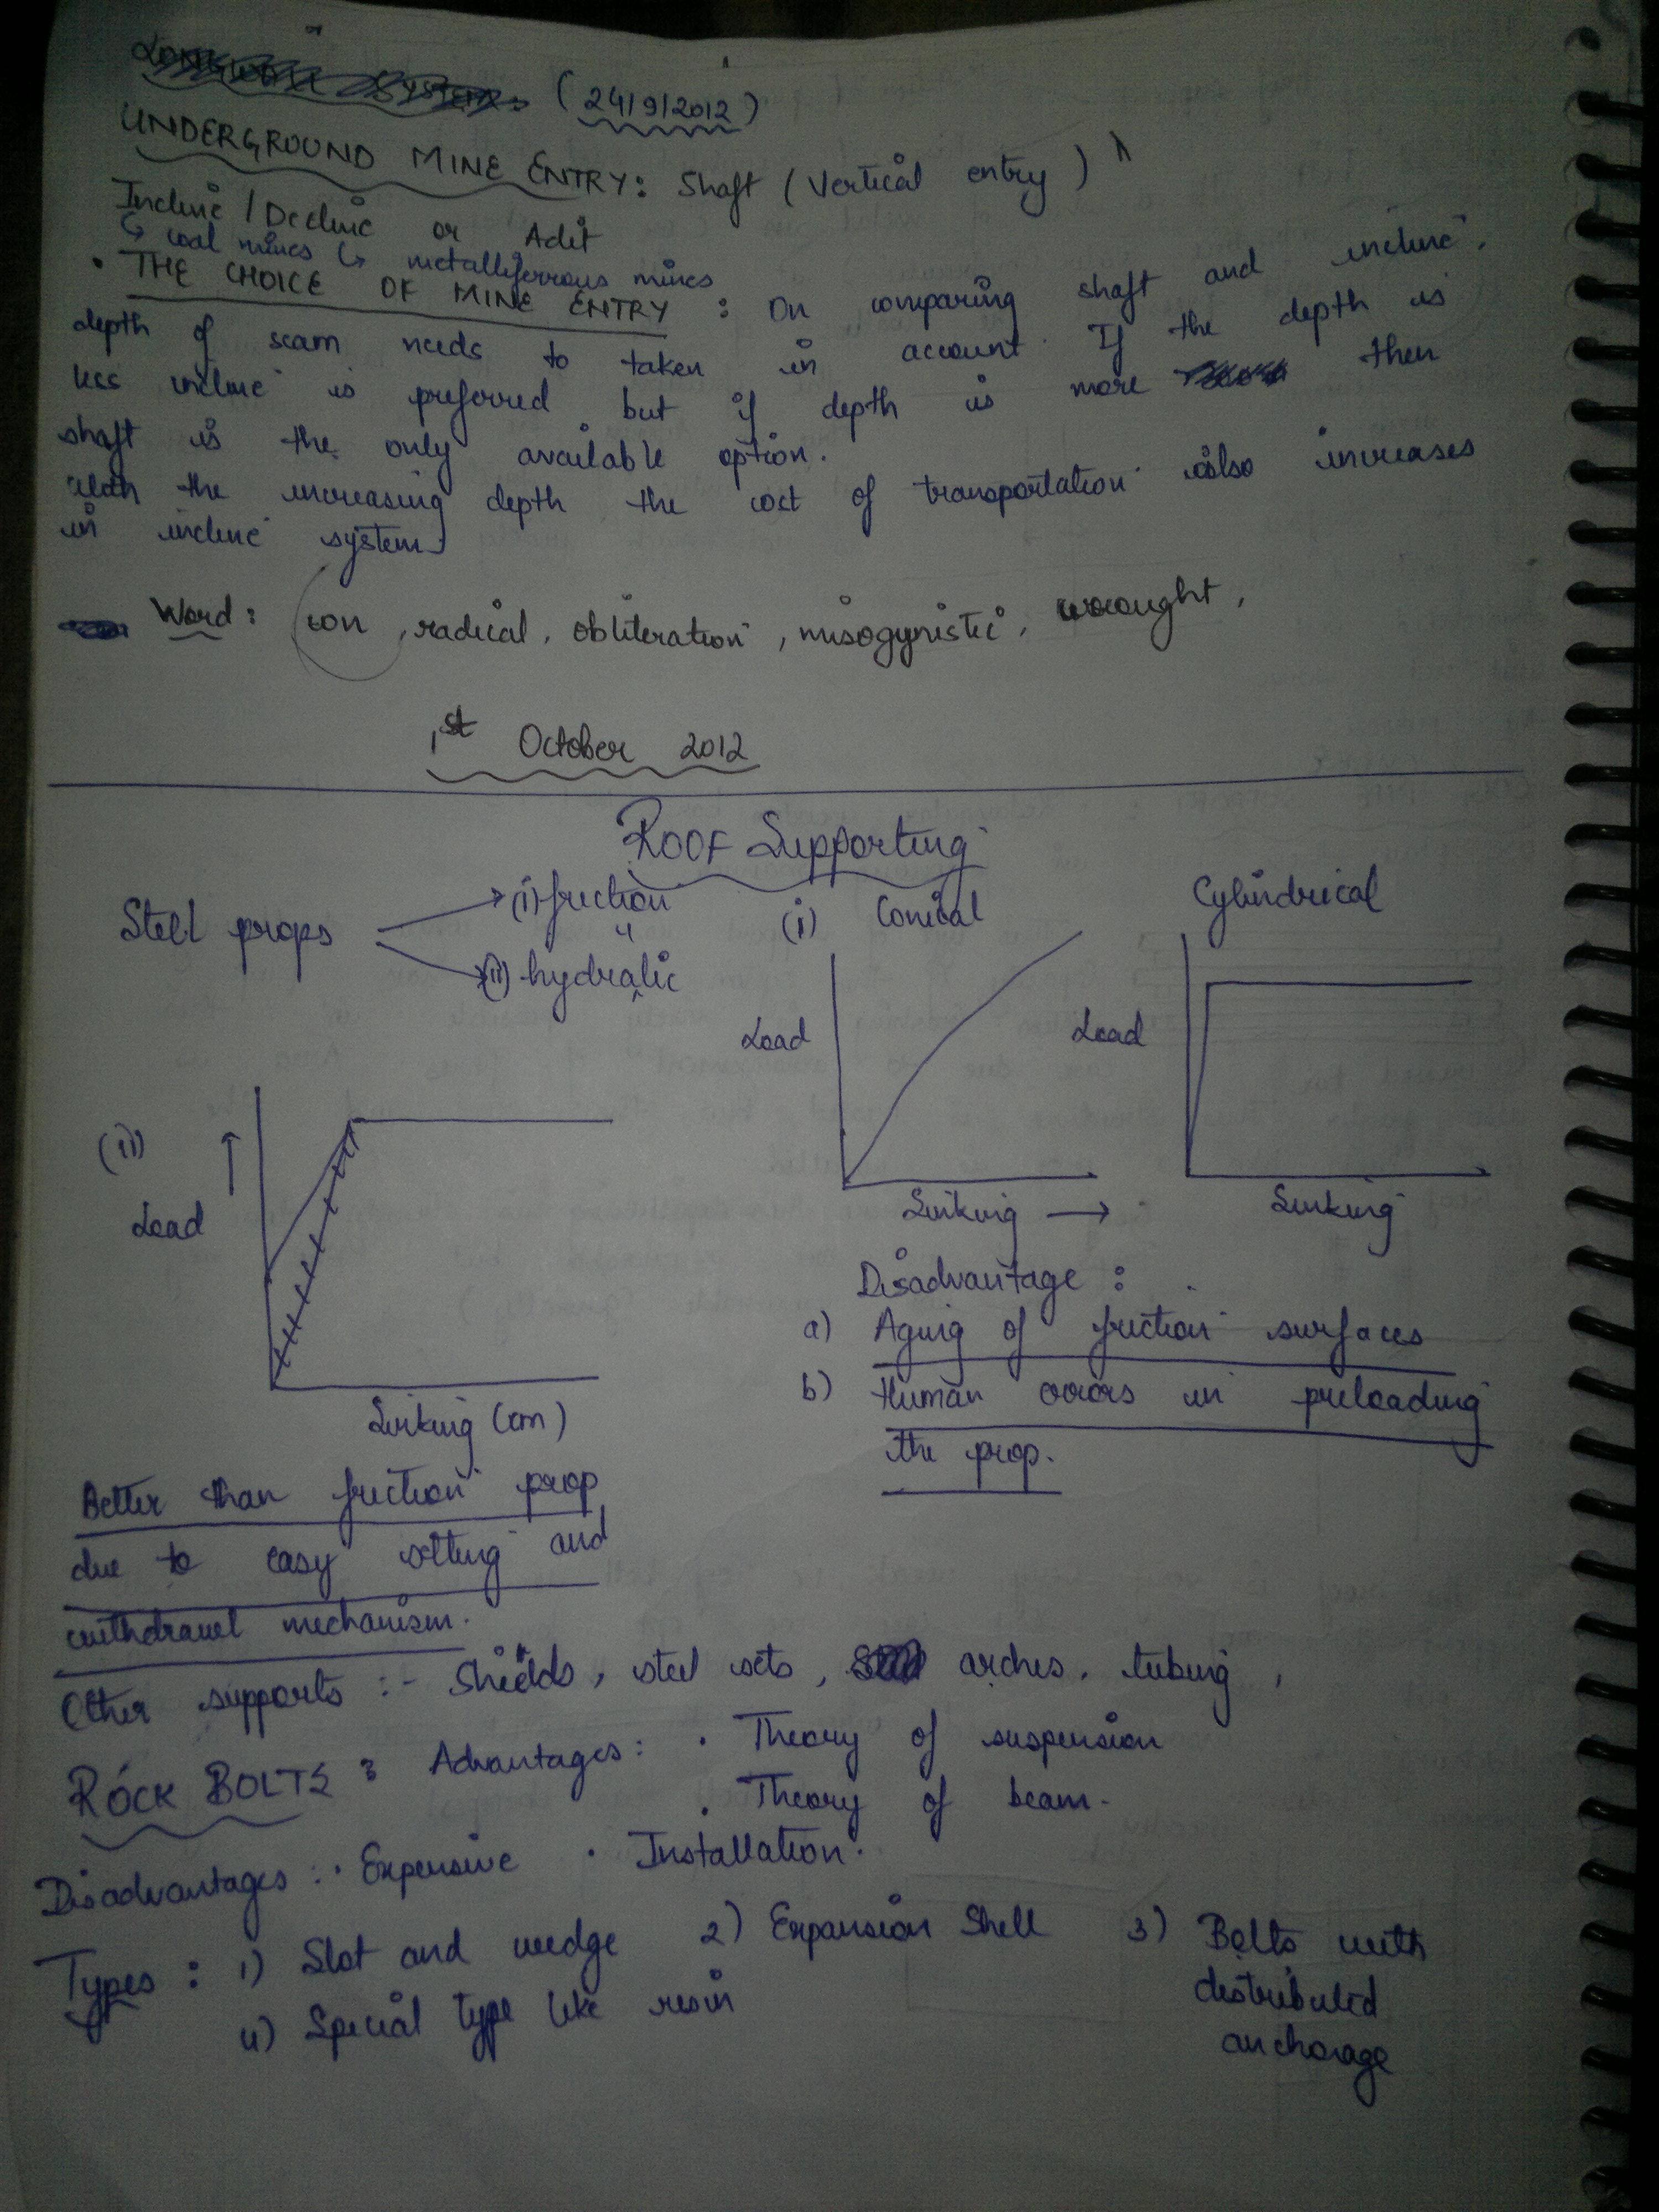 (24/9/2012)
UNDERGROUND MINE ENTRY: Shaft (Vertical entry)
Incline / Decline or Adit
↳ coal mines ↳ metalliferrous mines
• THE CHOICE OF MINE ENTRY : On comparing shaft and incline,
depth of seam needs to taken in account. If the depth is
less incline is preferred but if depth is more then
shaft is the only available option.
With the increasing depth the cost of transportation also increases
in incline system
Word: con, radical, obliteration, misogynistic, wrought,
1st October 2012
ROOF Supporting
Steel props → (i) friction "
→ (ii) hydralic
(i) Conical
Load
Sinking →
Cylindrical
Load
Sinking
(ii) ↑
Load
Sinking (cm)
Disadvantage :
a) Aging of friction surfaces
b) Human errors in preloading
the prop.
Better than friction prop
due to easy setting and
withdrawel mechanism.
Other supports :- Shields, steel sets, arches, tubing,
ROCK BOLTS : Advantages: • Theory of suspension
• Theory of beam.
Disadvantages : • Expensive • Installation.
Types : 1) Slot and wedge 2) Expansion Shell 3) Bolts with
distributed
anchorage
4) Special type like resin